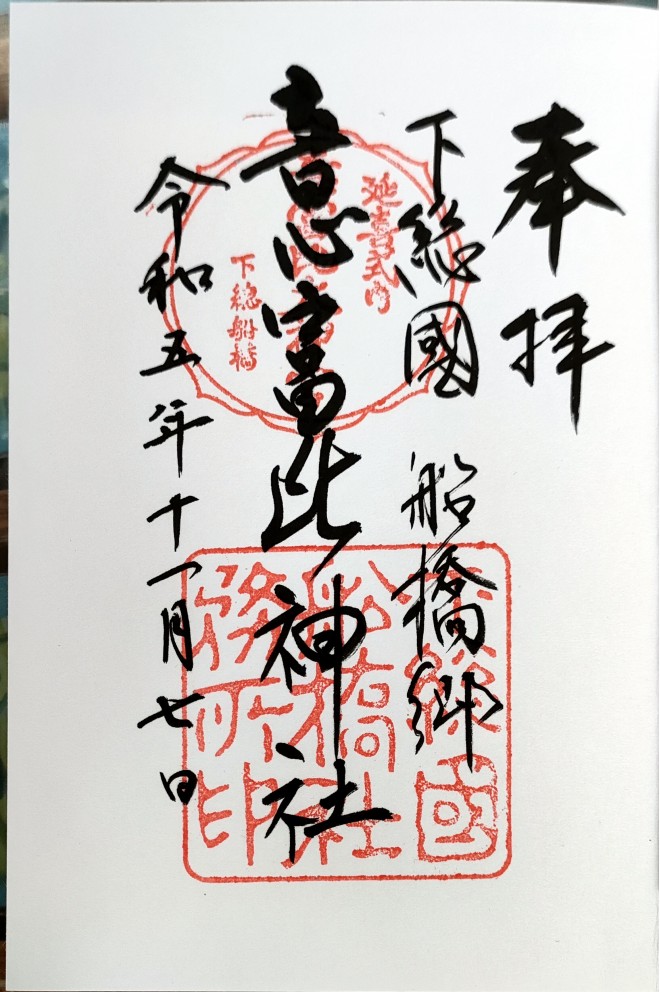 奉拝
下総國 船橋郷
意富比神社
令和五年十一月七日
延喜式内
下総船橋
下総國
船橋社
務所印